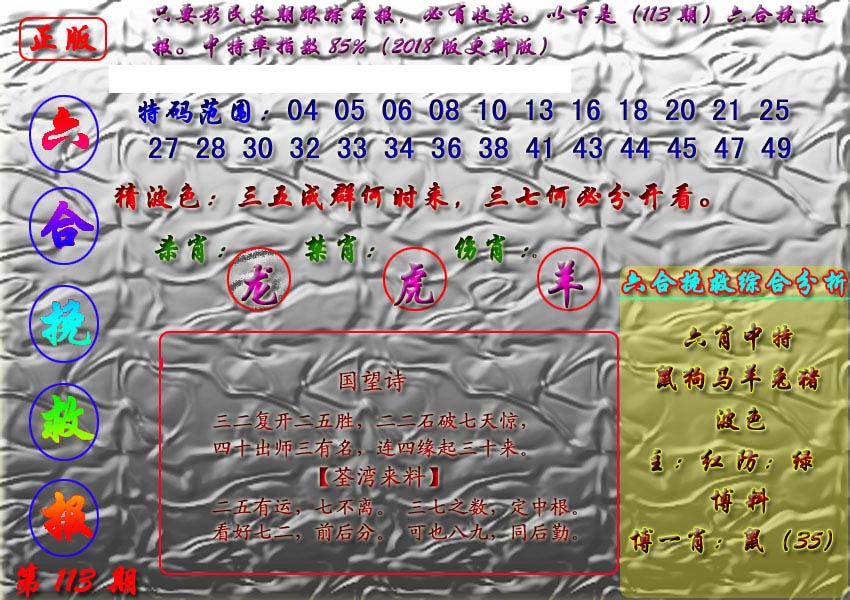 正版
只要彩民长期跟踪本报，必有收获。以下是（113期）六合挽救
报。中特率指数85%（2018版更新版）
六合挽救报
第113期
特码范围：04 05 06 08 10 13 16 18 20 21 25
27 28 30 32 33 34 36 38 41 43 44 45 47 49
猜波色：三五成群何时来，三七何必分开看。
杀肖：龙 禁肖：虎 伤肖：羊
国望诗
三二复开二五胜，二二石破七天惊，
四十出师三有名，连四缘起三十来。
【荃湾来料】
二五有运，七不离。三七之数，定中根。
看好七二，前后分。可也八九，同后勤。
六合挽救综合分析
六肖中特
鼠狗马羊兔猪
波色
主：红防：绿
博料
博一肖：鼠（35）